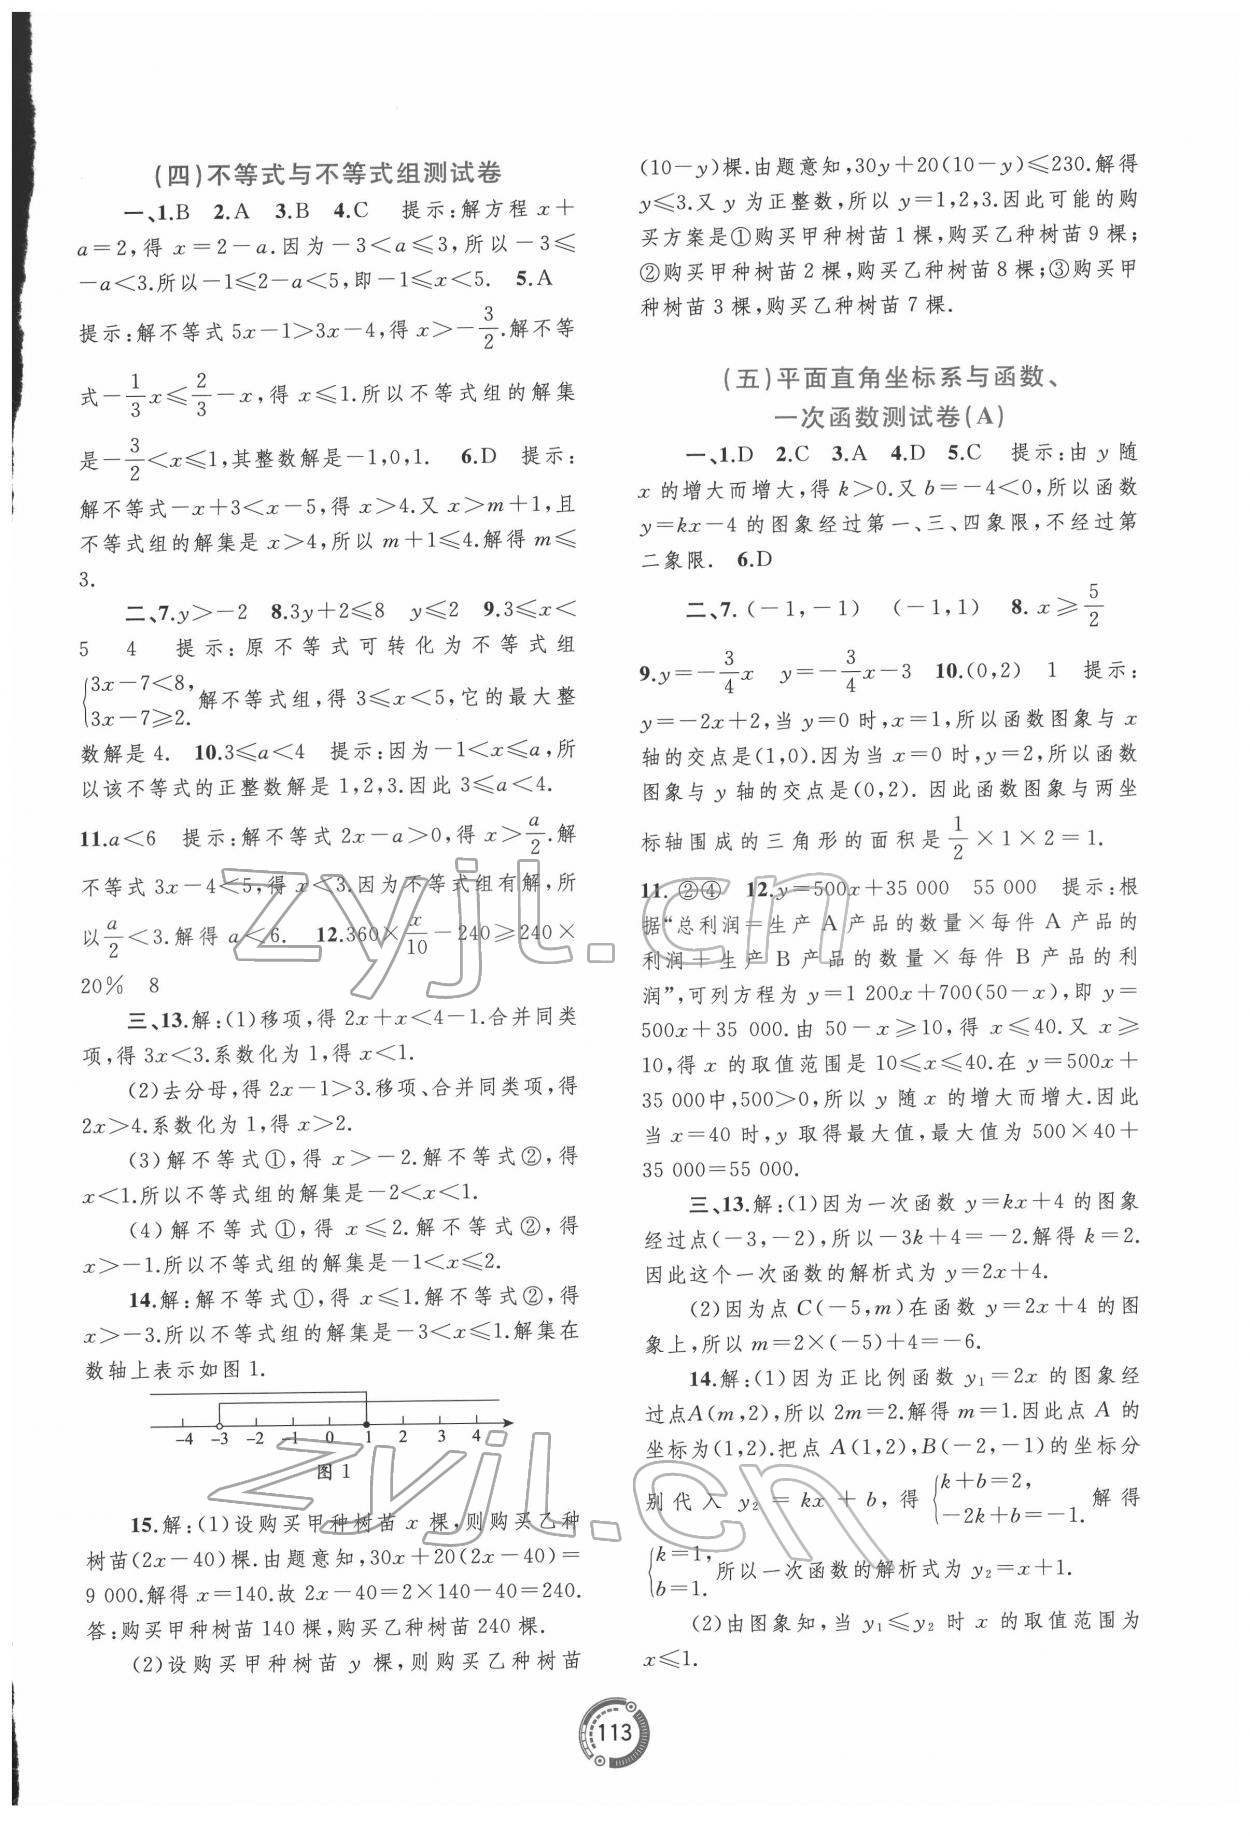 (四)不等式与不等式组测试卷
一、1.B 2.A 3.B 4.C 提示:解方程 x+
a=2,得 x=2-a.因为-3<a≤3,所以-3≤
-a<3.所以-1≤2-a<5,即-1≤x<5. 5.A
提示:解不等式 5x-1>3x-4,得 x>-3/2.解不等
式-1/3x≤2/3-x,得 x≤1.所以不等式组的解集
是-3/2<x≤1,其整数解是-1,0,1. 6.D 提示:
解不等式-x+3<x-5,得 x>4.又 x>m+1,且
不等式组的解集是 x>4,所以 m+1≤4.解得 m≤
3.
二、7.y>-2 8.3y+2≤8 y≤2 9.3≤x<
5 4 提示:原不等式可转化为不等式组
{3x-7<8,
3x-7≥2.解不等式组,得 3≤x<5,它的最大整
数解是 4. 10.3≤a<4 提示:因为-1<x≤a,所
以该不等式的正整数解是 1,2,3.因此 3≤a<4.
11.a<6 提示:解不等式 2x-a>0,得 x>a/2.解
不等式 3x-4≤5,得 x≤3.因为不等式组有解,所
以a/2<3.解得 a<6. 12.360×x/10-240≥240×
20% 8
三、13.解:(1)移项,得 2x+x<4-1.合并同类
项,得 3x<3.系数化为 1,得 x<1.
(2)去分母,得 2x-1>3.移项、合并同类项,得
2x>4.系数化为 1,得 x>2.
(3)解不等式①,得 x>-2.解不等式②,得
x<1.所以不等式组的解集是-2<x<1.
(4)解不等式①,得 x≤2.解不等式②,得
x>-1.所以不等式组的解集是-1<x≤2.
14.解:解不等式①,得 x≤1.解不等式②,得
x>-3.所以不等式组的解集是-3<x≤1.解集在
数轴上表示如图 1.
-4 -3 -2 -1 0 1 2 3 4
图 1
15.解:(1)设购买甲种树苗 x 棵,则购买乙种
树苗(2x-40)棵.由题意知,30x+20(2x-40)=
9 000.解得 x=140.故 2x-40=2×140-40=240.
答:购买甲种树苗 140 棵,购买乙种树苗 240 棵.
(2)设购买甲种树苗 y 棵,则购买乙种树苗
(10-y)棵.由题意知,30y+20(10-y)≤230.解得
y≤3.又 y 为正整数,所以 y=1,2,3.因此可能的购
买方案是①购买甲种树苗 1 棵,购买乙种树苗 9 棵;
②购买甲种树苗 2 棵,购买乙种树苗 8 棵;③购买甲
种树苗 3 棵,购买乙种树苗 7 棵.
(五)平面直角坐标系与函数、
一次函数测试卷(A)
一、1.D 2.C 3.A 4.D 5.C 提示:由 y 随
x 的增大而增大,得 k>0.又 b=-4<0,所以函数
y=kx-4 的图象经过第一、三、四象限,不经过第
二象限. 6.D
二、7.(-1,-1) (-1,1) 8.x≥5/2
9.y=-3/4x y=-3/4x-3 10.(0,2) 1 提示:
y=-2x+2,当 y=0 时,x=1,所以函数图象与 x
轴的交点是(1,0).因为当 x=0 时,y=2,所以函数
图象与 y 轴的交点是(0,2). 因此函数图象与两坐
标轴围成的三角形的面积是1/2×1×2=1.
11. ②④ 12.y=500x+35 000 55 000 提示:根
据“总利润=生产 A 产品的数量×每件 A 产品的
利润+生产 B 产品的数量×每件 B 产品的利
润”,可列方程为 y=1 200x+700(50-x),即 y=
500x+35 000.由 50-x≥10,得 x≤40.又 x≥
10,得 x 的取值范围是 10≤x≤40.在 y=500x+
35 000中,500>0,所以 y 随 x 的增大而增大.因此
当 x=40 时,y 取得最大值,最大值为 500×40+
35 000=55 000.
三、13.解:(1)因为一次函数 y=kx+4 的图象
经过点(-3,-2),所以-3k+4=-2.解得 k=2.
因此这个一次函数的解析式为 y=2x+4.
(2)因为点 C(-5,m)在函数 y=2x+4 的图
象上,所以 m=2×(-5)+4=-6.
14.解:(1)因为正比例函数 y₁=2x 的图象经
过点A(m,2),所以 2m=2.解得 m=1.因此点 A 的
坐标为(1,2).把点 A(1,2),B(-2,-1)的坐标分
别代入 y₂=kx+b,得{k+b=2,
-2k+b=-1.解得
{k=1,
b=1.所以一次函数的解析式为 y₂=x+1.
(2)由图象知,当 y₁≤y₂ 时 x 的取值范围为
x≤1.
113
zyjl.cn
zyjl.cn